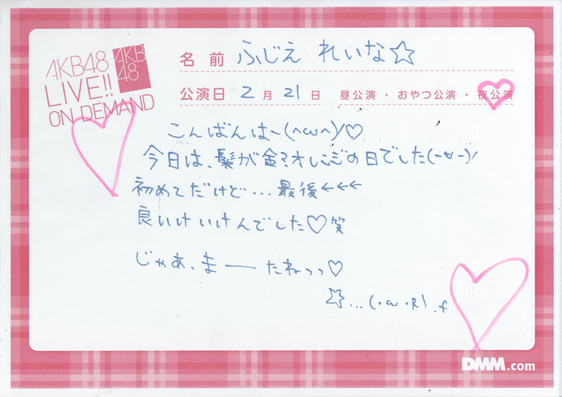 AKB48
LIVE!!
ON DEMAND
AKB
48
名前 ふじえ れいな☆
公演日 2月21日 昼公演・おやつ公演・夜公演
こんばんはー(^ω^)♡
今日は、髪が金マオレンジの日でした(ーωー)/
初めてだけど…最後←←←
良いけいけんでした♡笑
じゃあ、まーたねっっ♡
☆...(・ω・R)
DMM.com